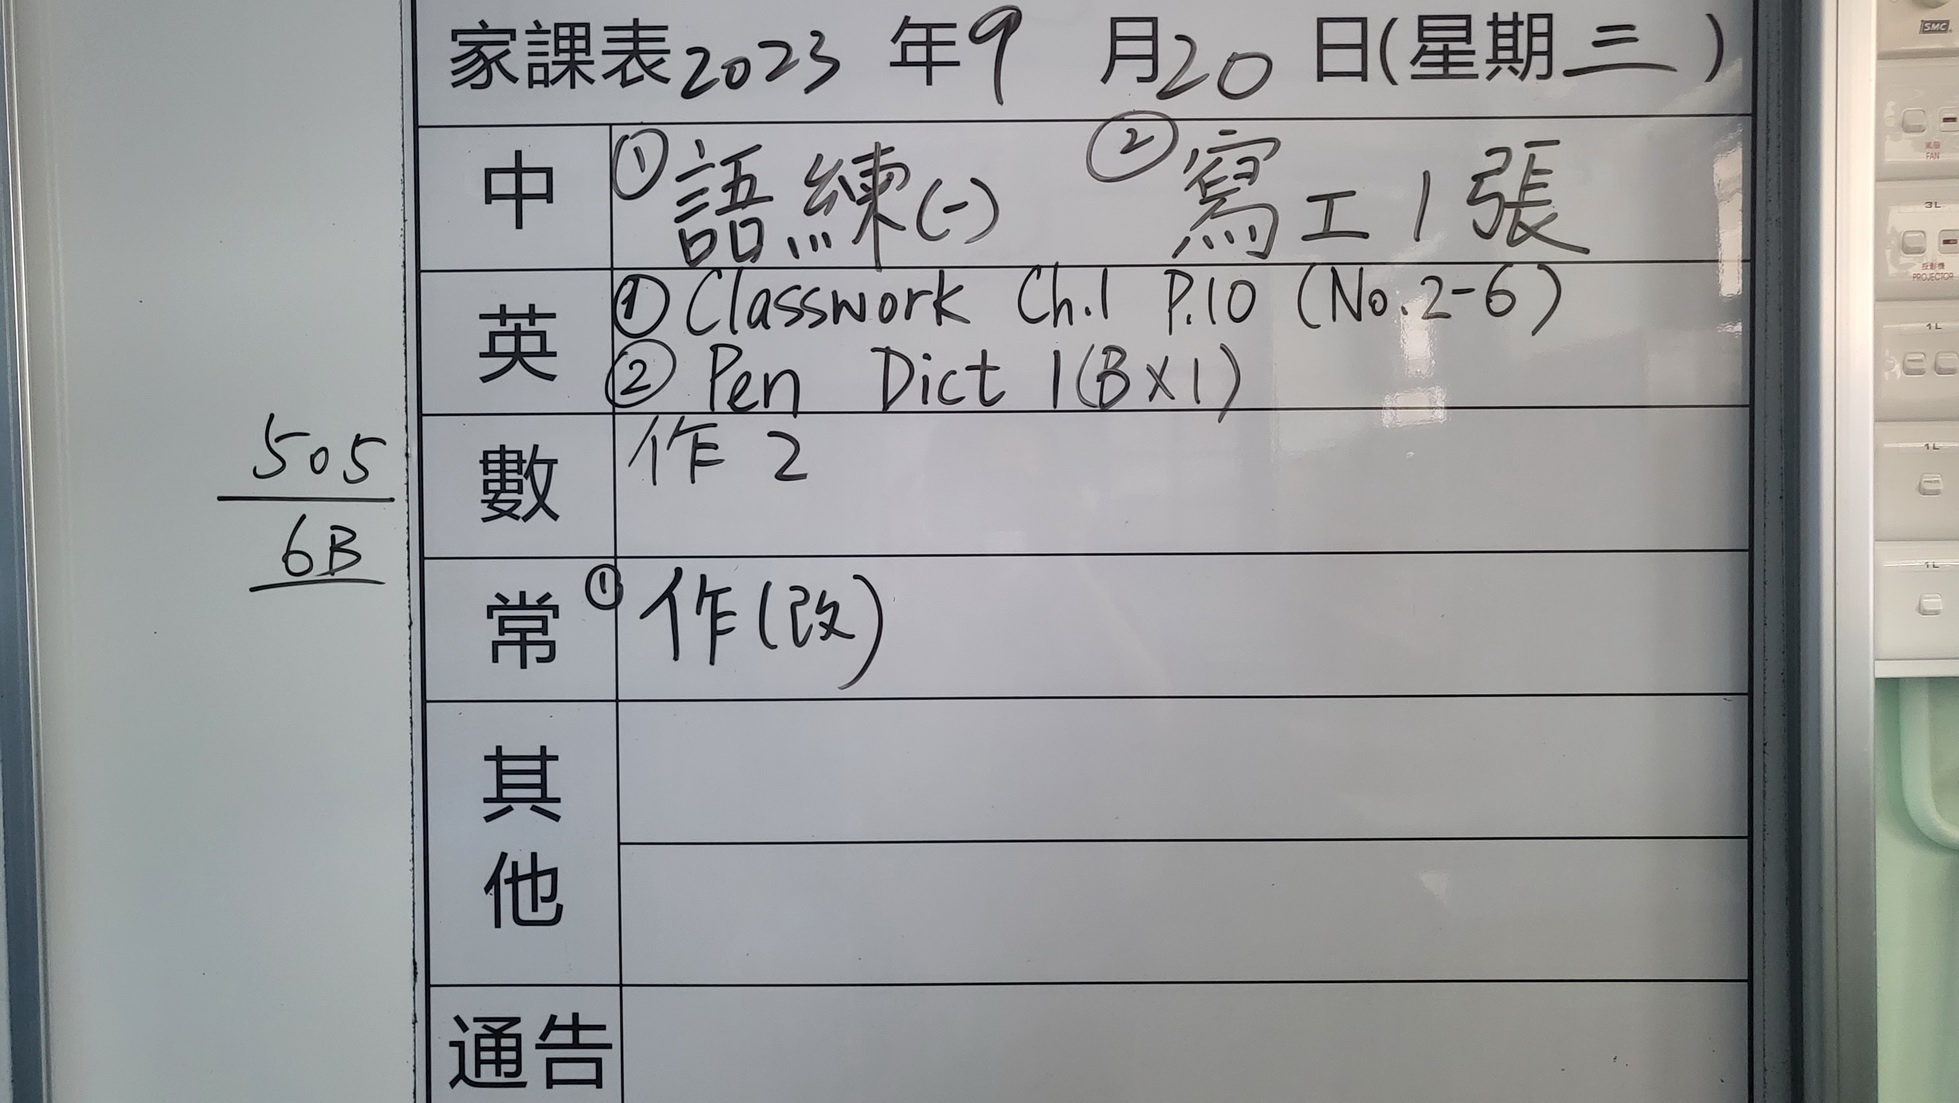 家課表2023 年9 月20 日(星期三)
中 ①語練(一) ②寫工1張
英 ①Classwork Ch.1 P.10 (No.2-6)
②Pen Dict 1(B×1)
數 作2
505
6B
常 ①作(改)
其他
通告
SMC
FAN
3L
投影機
PROJECTOR
1L
1L
1L